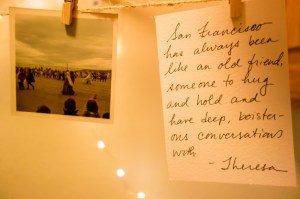 San Francisco
has always been
like an old friend,
someone to hug
and hold and
have deep, boister-
ous conversations
with
- Theresa